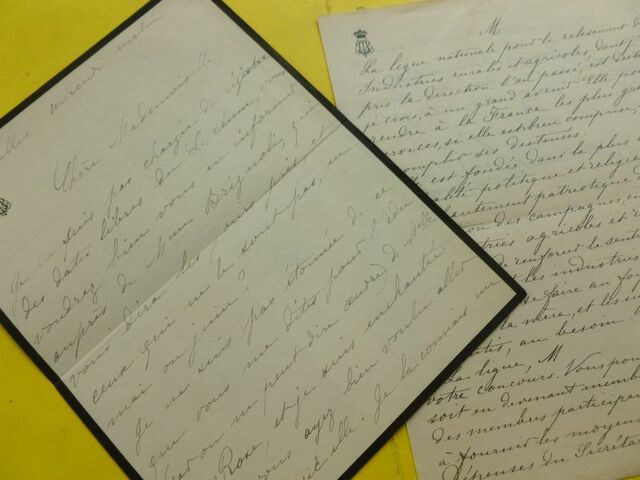 mercredi matin
Chère Mademoiselle,
Je ne suis pas chargée de
des dates libres du
voudrez bien vous en informer
auprès de Mme Brignoli, qui
vous dira les jours pris et
ceux qui ne le sont pas, en
mai ou juin?
Je ne suis pas étonnée de ce
que vous me dites pour l'édu
(car on ne peut dire
Rose, et je suis enchantée
vous ayez bien voulu aller
elle. Je la connais un
M
La ligue nationale pour le relèvement des
Industries rurales et agricoles, dont j'
pris la direction l'an passé, est
je crois, à un grand avenir. Elle
rendre à la France les plus gra
services, si elle est bien comprise
ses destinées.
est fondée dans la plus
politique et relig
hautement patriotique
des campagnes, en
agricoles et
renforcer le sent
et les industries
se faire au foy
la mère, et les
au besoin
La ligue, M
votre concours. Vous pouv
soit en devenant memb
des membres participa
à fournir les moyens
Dépenses du Secréta